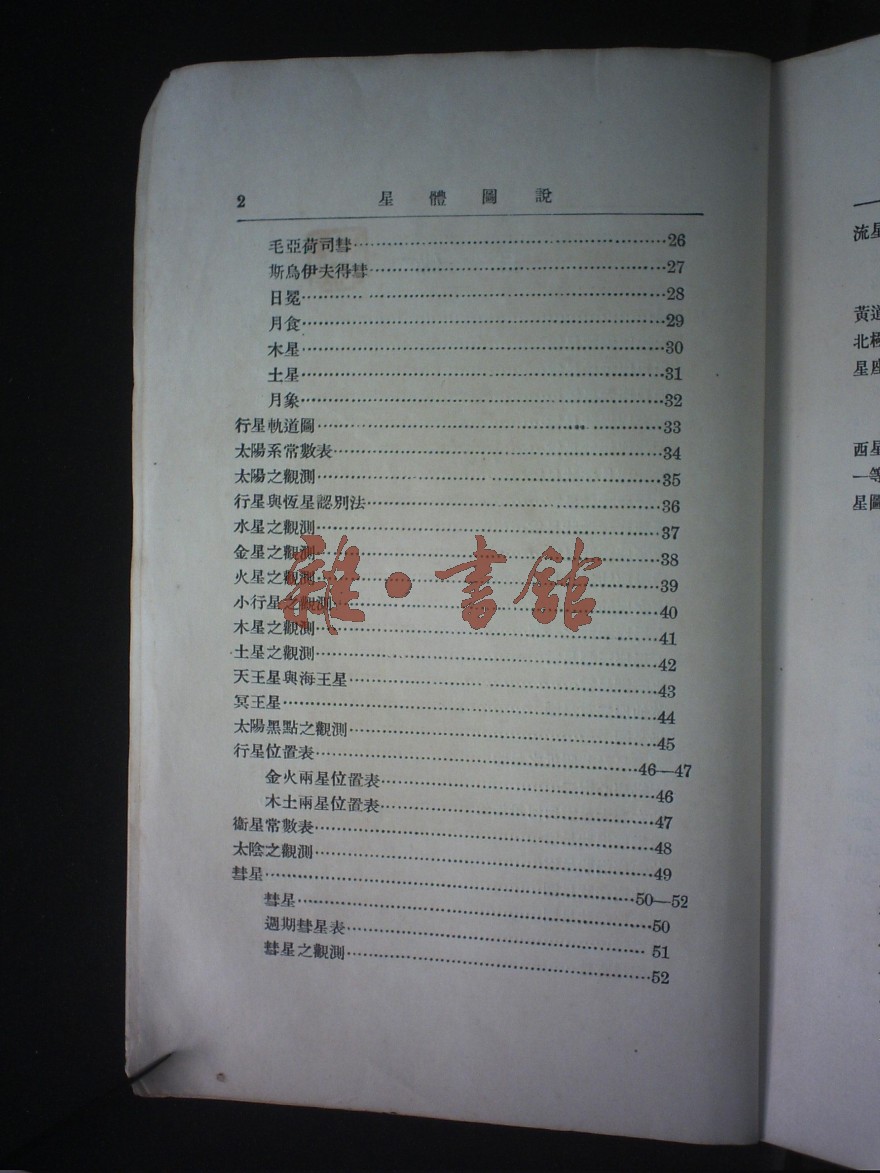 2 星體圖說
毛亞荷司彗……26
斯烏伊夫得彗……27
日冕……28
月食……29
木星……30
土星……31
月象……32
行星軌道圖……33
太陽系常數表……34
太陽之觀測……35
行星與恆星認別法……36
水星之觀測……37
金星之觀測……38
火星之觀測……39
小行星之觀測……40
木星之觀測……41
土星之觀測……42
天王星與海王星……43
冥王星……44
太陽黑點之觀測……45
行星位置表……46—47
金火兩星位置表……46
木土兩星位置表……47
衞星常數表……48
太陰之觀測……49
彗星……50—52
彗星……50
週期彗星表……51
彗星之觀測……52
雜·書館
流星
黃道
北極
星座
西星
一等
星圖